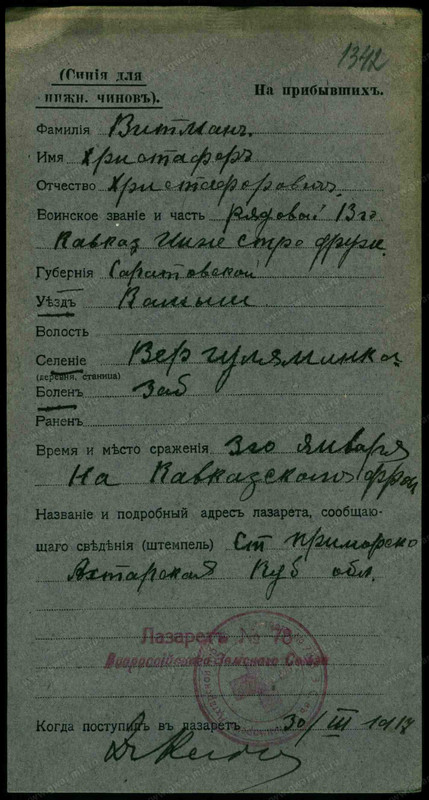 1342
(Синія для
нижн. чиновъ).
На прибывшихъ.
Фамилія Витманъ.
Имя Христафоръ
Отчество Христафоровичъ.
Воинское званіе и часть рядовой 13го
Кавказ Инже стро друж.
Губернія Саратовской
Уѣздъ Камыши
Волость
Селеніе Вер гуляминка
(деревня, станица)
Боленъ Заб
Раненъ
Время и мѣсто сраженія 3го января
На Кавказского фрон
Названіе и подробный адресъ лазарета, сообщаю-
щаго свѣдѣнія (штемпель) Ст приморско
Ахтарская Куб обл.
Лазаретъ № 78
Всероссійскаго Земскаго Союза
Когда поступилъ въ лазаретъ 30/III 1917